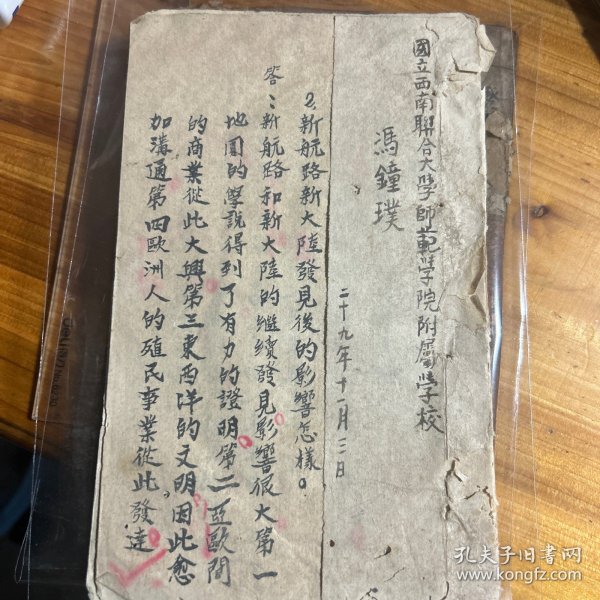 國立西南聯合大學師範學院附屬學校
馮鐘璞
二十九年十一月三日
2.新航路新大陸發見後的影響怎樣。
答：新航路和新大陸的繼續發見影響很大第一
地圓的學說得到了有力的證明第二亞歐間
的商業從此大興第三東西洋的文明因此愈
加溝通第四歐洲人的殖民事業從此發達
孔夫子旧书网
www.kongfz.com